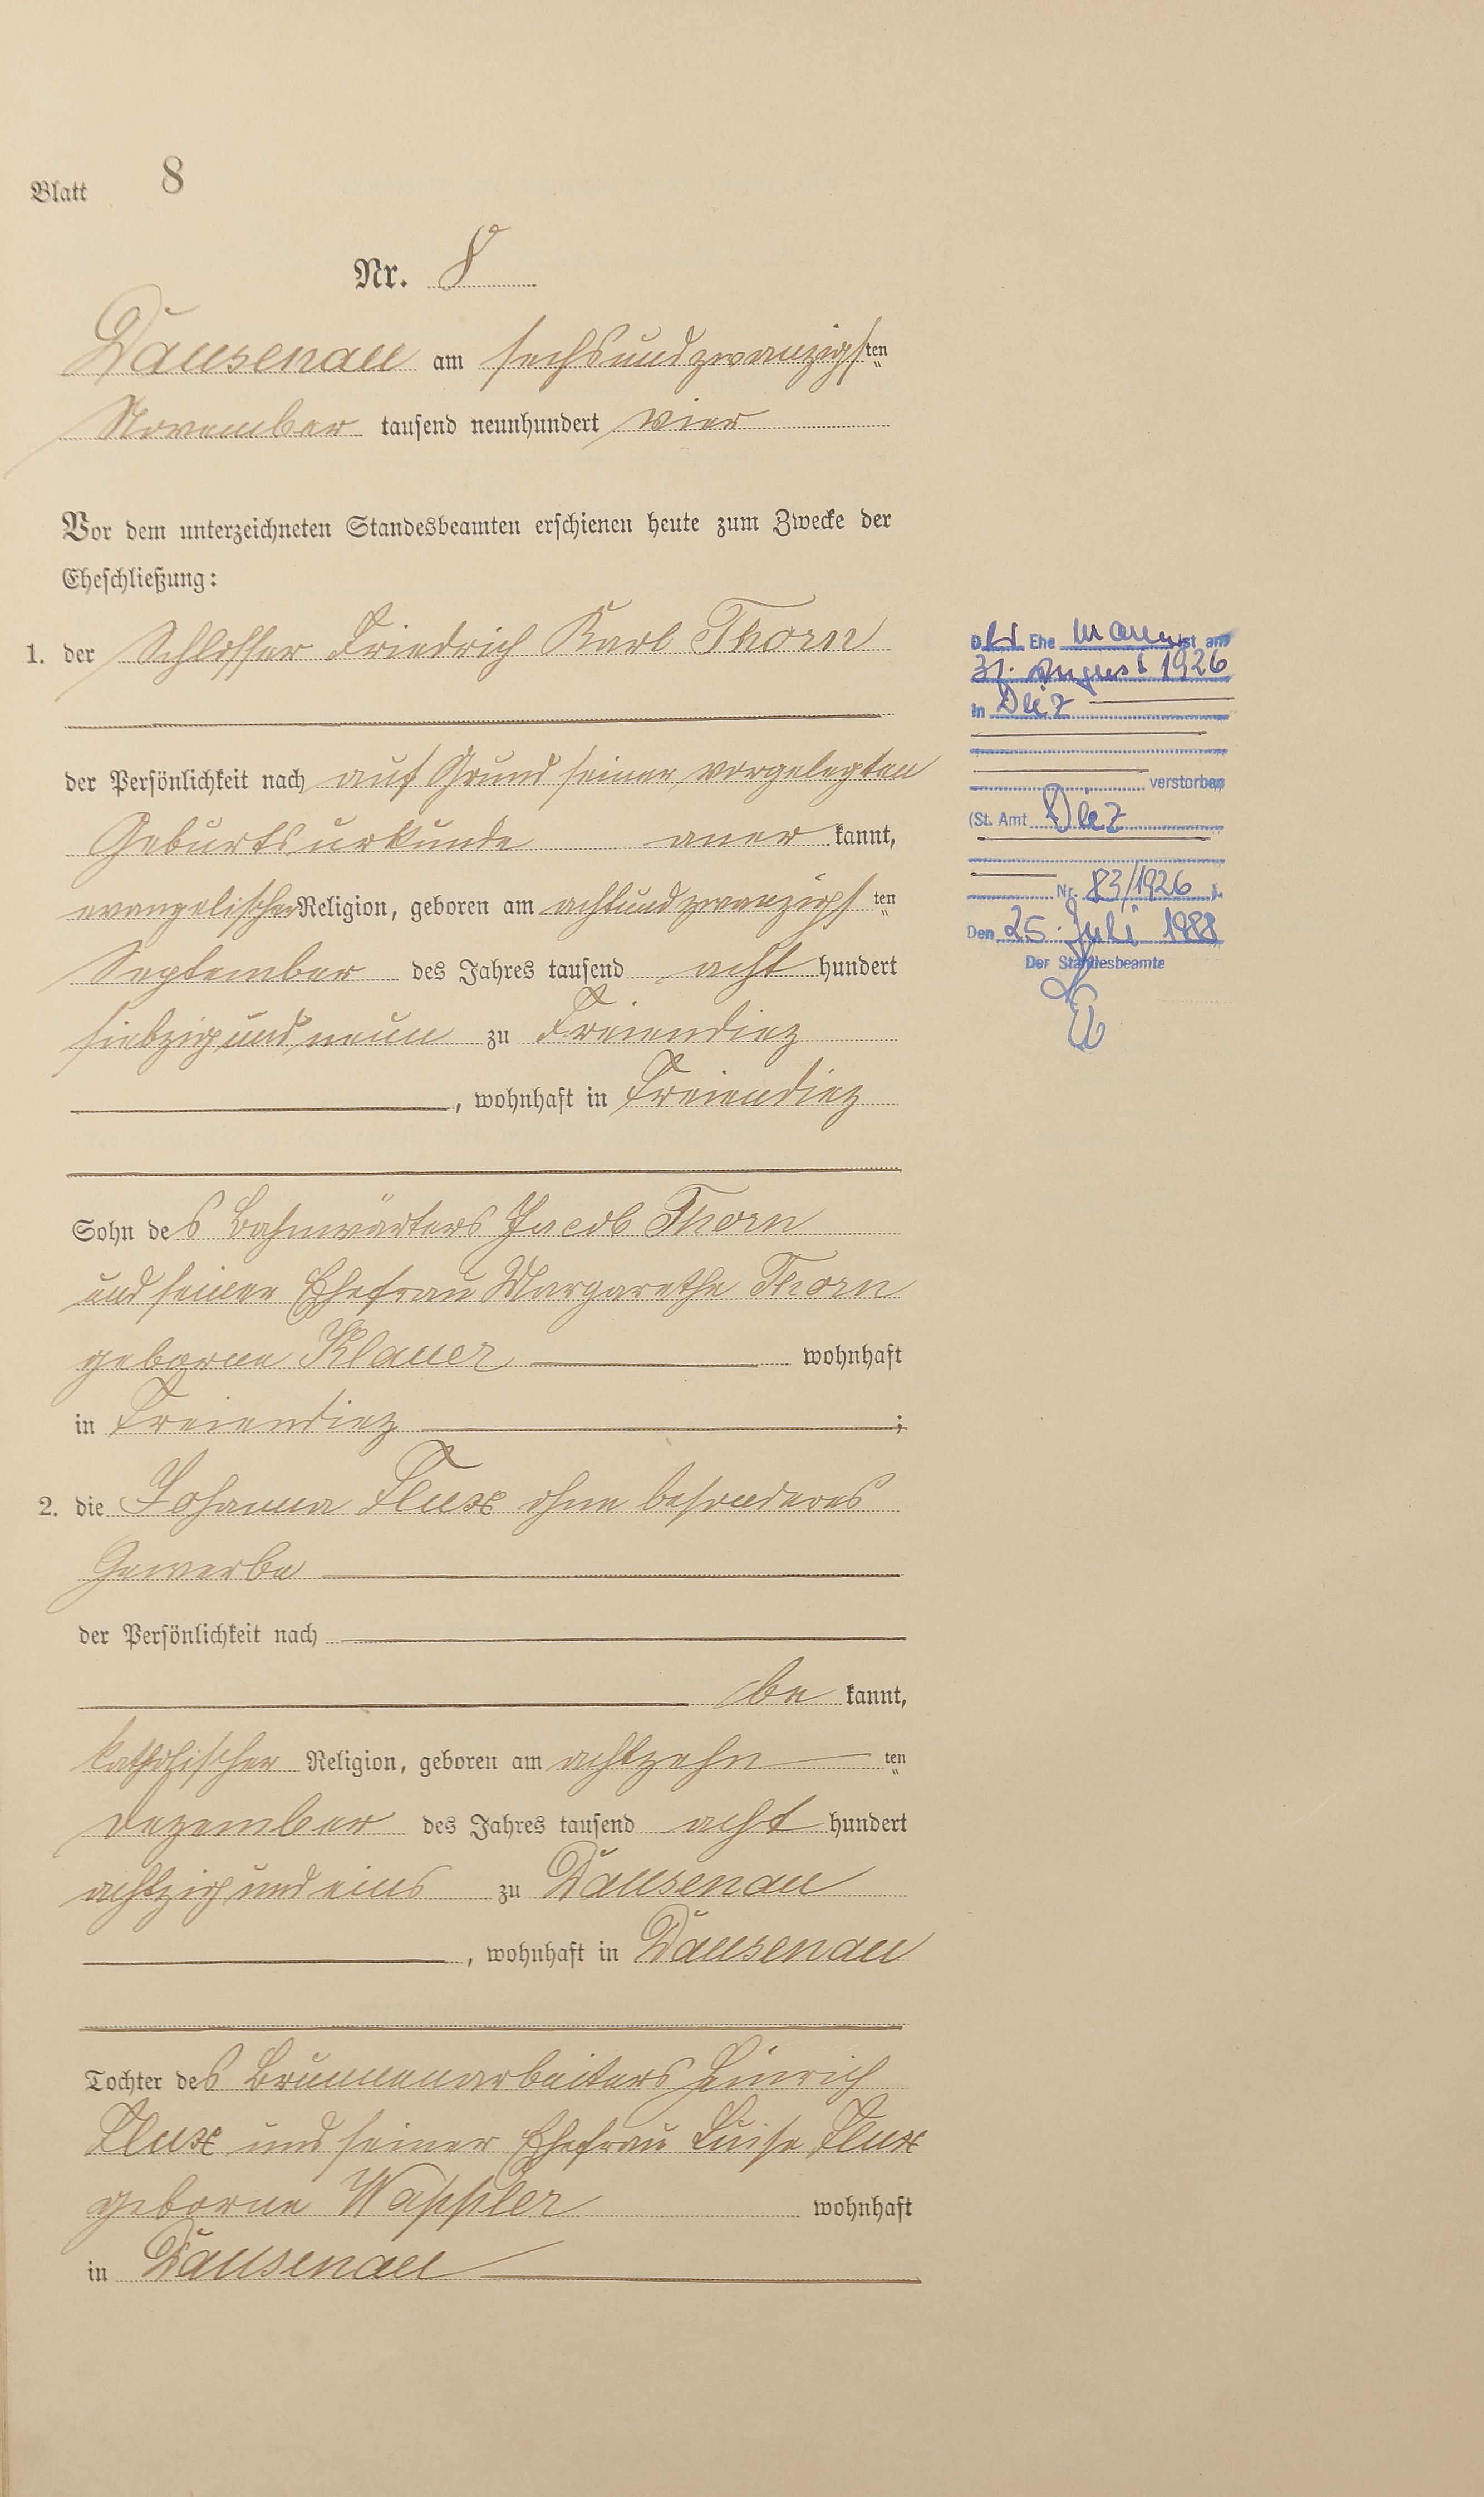 Blatt 8
Nr. 8
Dausenau am sechsundzwanzigsten
November tausend neunhundert vier
Vor dem unterzeichneten Standesbeamten erschienen heute zum Zwecke der
Eheschließung:
1. der Schlosser Friedrich Karl Thorn
der Persönlichkeit nach auf Grund seiner vorgelegten
Geburtsurkunde anerkannt,
evangelischer Religion, geboren am achtundzwanzigsten
September des Jahres tausend acht hundert
siebzig und neun zu Freiendiez
, wohnhaft in Freiendiez
Sohn des Bahnwärters Jacob Thorn
und seiner Ehefrau Margarethe Thorn
geborne Klauer wohnhaft
in Freiendiez ;
2. die Johanna Flux ohne besonderes
Gewerbe
der Persönlichkeit nach
bekannt,
katholischer Religion, geboren am achtzehnten
Dezember des Jahres tausend acht hundert
achtzig und eins zu Dausenau
, wohnhaft in Dausenau
Tochter des Brunnenarbeiters Heinrich
Flux und seiner Ehefrau Luise Flux
geborne Wappler wohnhaft
in Dausenau
Der Ehemann ist am
31. August 1926
in Diez
verstorben
(St. Amt Diez
Nr. 83/1926 ).
Den 25. Juli 1988
Der Standesbeamte